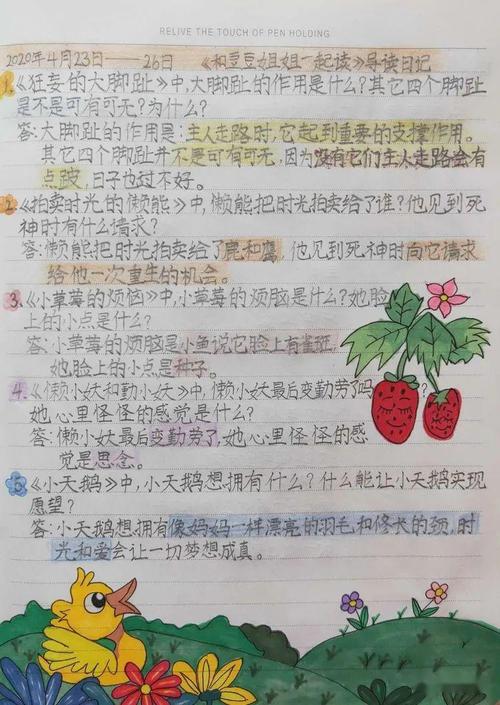 RELIVE THE TOUCH OF PEN HOLDING
2020年4月23日——26日 《和豆豆姐姐一起读》导读日记
1.《狂妄的大脚趾》中,大脚趾的作用是什么?其它四个脚趾
是不是可有可无?为什么?
答:大脚趾的作用是:主人走路时,它起到重要的支撑作用。
其它四个脚趾并不是可有可无,因为没有它们主人走路会有
点跛,日子也过不好。
2.《拍卖时光的懒熊》中,懒熊把时光拍卖给了谁?他见到死
神时有什么请求?
答:懒熊把时光拍卖给了鹿和鹰,他见到死神时向它请求
给他一次重生的机会。
3.《小草莓的烦恼》中,小草莓的烦脑是什么?她脸
上的小点是什么?
答:小草莓的烦脑是小鱼说它脸上有雀斑,
她脸上的小点是种子。
4.《懒小妖和勤小妖》中,懒小妖最后变勤劳了吗?
她心里怪怪的感觉是什么?
答:懒小妖最后变勤劳了,她心里怪怪的感
觉是思念。
5.《小天鹅》中,小天鹅想拥有什么?什么能让小天鹅实现
愿望?
答:小天鹅想拥有像妈妈一样漂亮的羽毛和修长的颈,时
光和爱会让一切梦想成真。